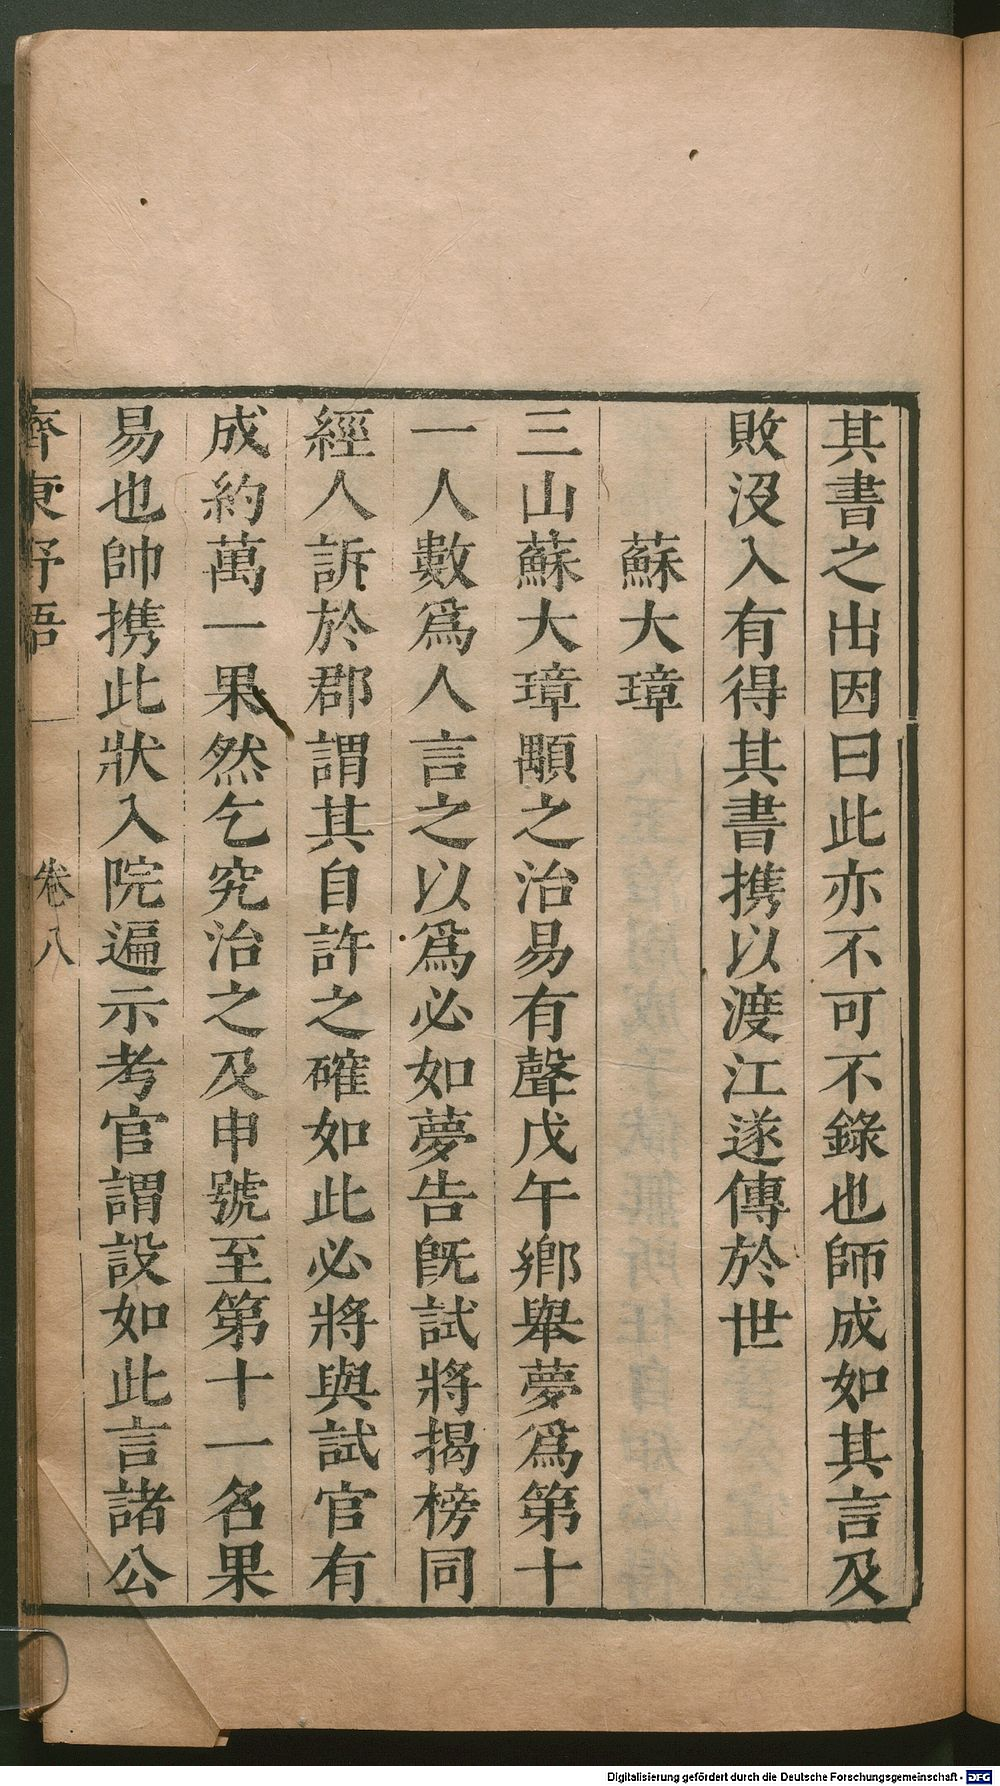 其書之出因曰此亦不可不錄也師成如其言及
敗沒入有得其書携以渡江遂傳於世
蘇大璋
三山蘇大璋顒之治易有聲戊午鄉舉夢爲第十
一人數爲人言之以爲必如夢告旣試將揭榜同
經人訴於郡謂其自許之確如此必將與試官有
成約萬一果然乞究治之及申號至第十一名果
易也帥携此狀入院遍示考官謂設如此言諸公
齊東野語
卷八
Digitalisierung gefördert durch die Deutsche Forschungsgemeinschaft - DFG